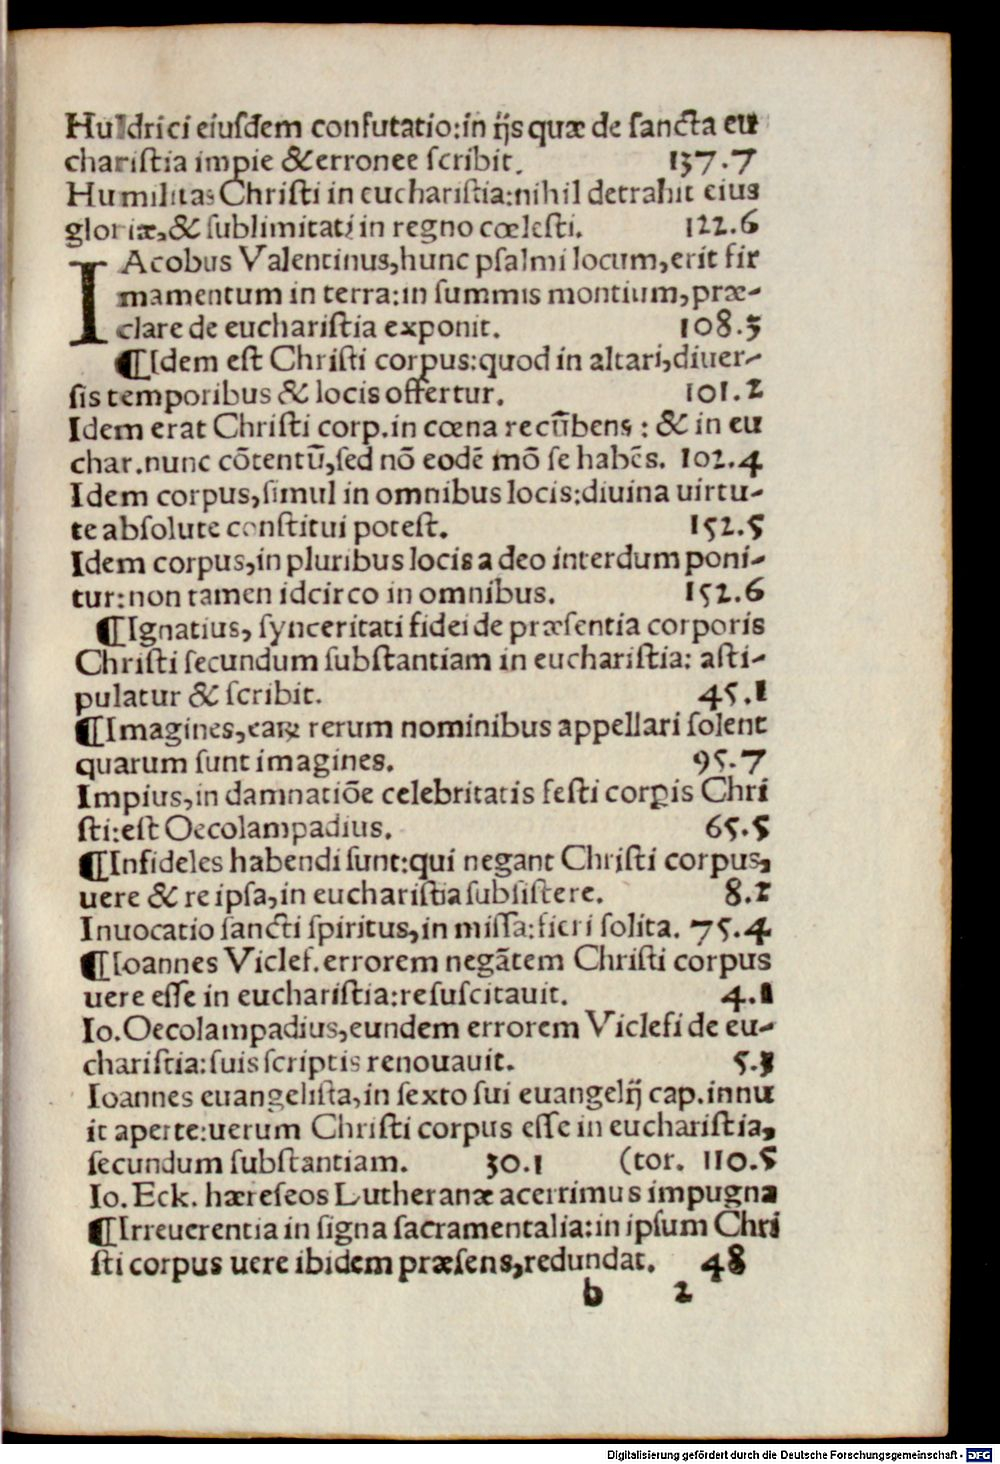 Huldrici eiuſdem confutatio:in ijs quæ de ſancta eu
chariſtia impie & erronee ſcribit. 137.7
Humilitas Chriſti in euchariſtia:nihil detrahit eius
gloriæ,& ſublimitati in regno cœleſti. 122.6
IAcobus Valentinus,hunc pſalmi locum,erit fir
mamentum in terra:in ſummis montium,præ-
clare de euchariſtia exponit. 108.3
¶Idem eſt Chriſti corpus:quod in altari,diuer-
ſis temporibus & locis offertur. 101.2
Idem erat Chriſti corp.in cœna recūbens : & in eu
char.nunc cōtentū,ſed nō eodē mō ſe habēs. 102.4
Idem corpus,ſimul in omnibus locis:diuina uirtu-
te abſolute conſtitui poteſt. 152.5
Idem corpus,in pluribus locis a deo interdum poni-
tur:non tamen idcirco in omnibus. 152.6
¶Ignatius, ſynceritati fidei de præſentia corporis
Chriſti ſecundum ſubſtantiam in euchariſtia: aſti-
pulatur & ſcribit. 45.1
¶Imagines,eaꝝ rerum nominibus appellari ſolent
quarum ſunt imagines. 95.7
Impius,in damnatiōe celebritatis feſti corꝑis Chri
ſti:eſt Oecolampadius. 65.5
¶Infideles habendi ſunt:qui negant Chriſti corpus,
uere & re ipſa,in euchariſtia ſubſiſtere. 8.2
Inuocatio ſancti ſpiritus,in miſſa:fieri ſolita. 75.4
¶Ioannes Viclef.errorem negātem Chriſti corpus
uere eſſe in euchariſtia:reſuſcitauit. 4.1
Io.Oecolampadius,eundem errorem Viclefi de eu-
chariſtia:ſuis ſcriptis renouauit. 5.3
Ioannes euangeliſta,in ſexto ſui euangelij cap.innu
it aperte:uerum Chriſti corpus eſſe in euchariſtia,
ſecundum ſubſtantiam. 30.1 (tor. 110.5
Io.Eck. hæreſeos Lutheranæ acerrimus impugna
¶Irreuerentia in ſigna ſacramentalia:in ipſum Chri
ſti corpus uere ibidem præſens,redundat. 48
b 2
Digitalisierung gefördert durch die Deutsche Forschungsgemeinschaft - DFG